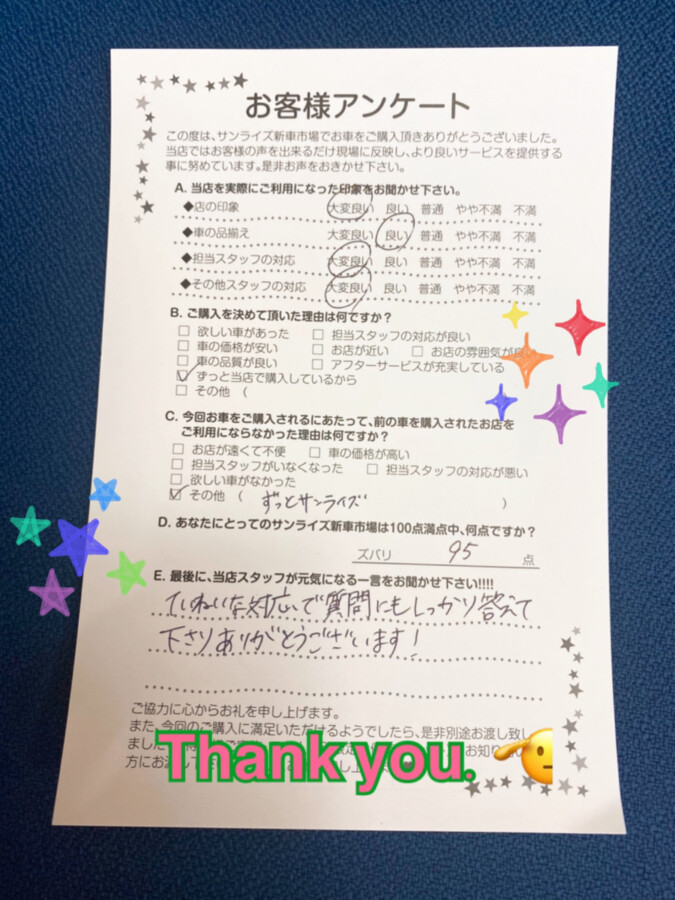 お客様アンケート
この度は、サンライズ新車市場でお車をご購入頂きありがとうございました。
当店ではお客様の声を出来るだけ現場に反映し、より良いサービスを提供する
事に努めています。是非お声をおきかせ下さい。
A. 当店を実際にご利用になった印象をお聞かせ下さい。
◆店の印象 大変良い 良い 普通 やや不満 不満
◆車の品揃え 大変良い 良い 普通 やや不満 不満
◆担当スタッフの対応 大変良い 良い 普通 やや不満 不満
◆その他スタッフの対応 大変良い 良い 普通 やや不満 不満
B. ご購入を決めて頂いた理由は何ですか？
□ 欲しい車があった □ 担当スタッフの対応が良い
□ 車の価格が安い □ お店が近い □ お店の雰囲気が良い
□ 車の品質が良い □ アフターサービスが充実している
☑ ずっと当店で購入しているから
□ その他 (
C. 今回お車をご購入されるにあたって、前の車を購入されたお店を
ご利用にならなかった理由は何ですか？
□ お店が遠くて不便 □ 車の価格が高い
□ 担当スタッフがいなくなった □ 担当スタッフの対応が悪い
□ 欲しい車がなかった
☑ その他 ( ずっとサンライズ )
D. あなたにとってのサンライズ新車市場は100点満点中、何点ですか？
ズバリ 95 点
E. 最後に、当店スタッフが元気になる一言をお聞かせ下さい!!!!
ていねいな対応で質問にもしっかり答えて
下さりありがとうございます！
ご協力に心からお礼を申し上げます。
また、今回のご購入に満足いただけるようでしたら、是非別途お渡し致し
ました お知り
方にお渡し 上
Thank you.